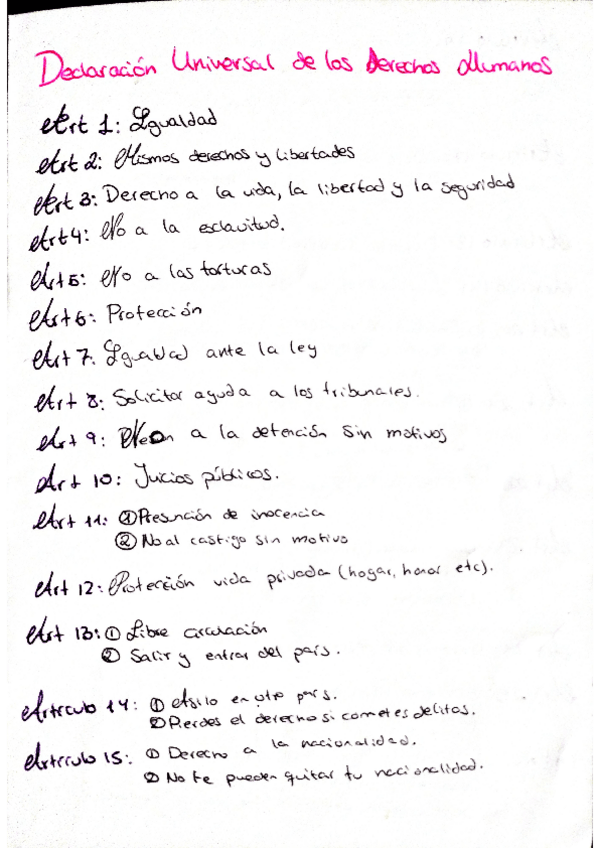 Declaración Universal de los Derechos Humanos
Art 1: Igualdad
Art 2: Mismos derechos y libertades
Art 3: Derecho a la vida, la libertad y la seguridad
Art 4: No a la esclavitud.
Art 5: No a las torturas
Art 6: Protección
Art 7. Igualdad ante la ley
Art 8: Solicitar ayuda a los tribunales.
Art 9: No a la detención sin motivos
Art 10: Juicios públicos.
Art 11: ① Presunción de inocencia
② No al castigo sin motivo
Art 12: Protección vida privada (hogar, honor etc).
Art 13: ① Libre circulación
② Salir y entrar del país.
Artículo 14: ① Asilo en otro país.
② Pierdes el derecho si cometes delitos.
Artículo 15: ① Derecho a la nacionalidad.
② No te pueden quitar tu nacionalidad.